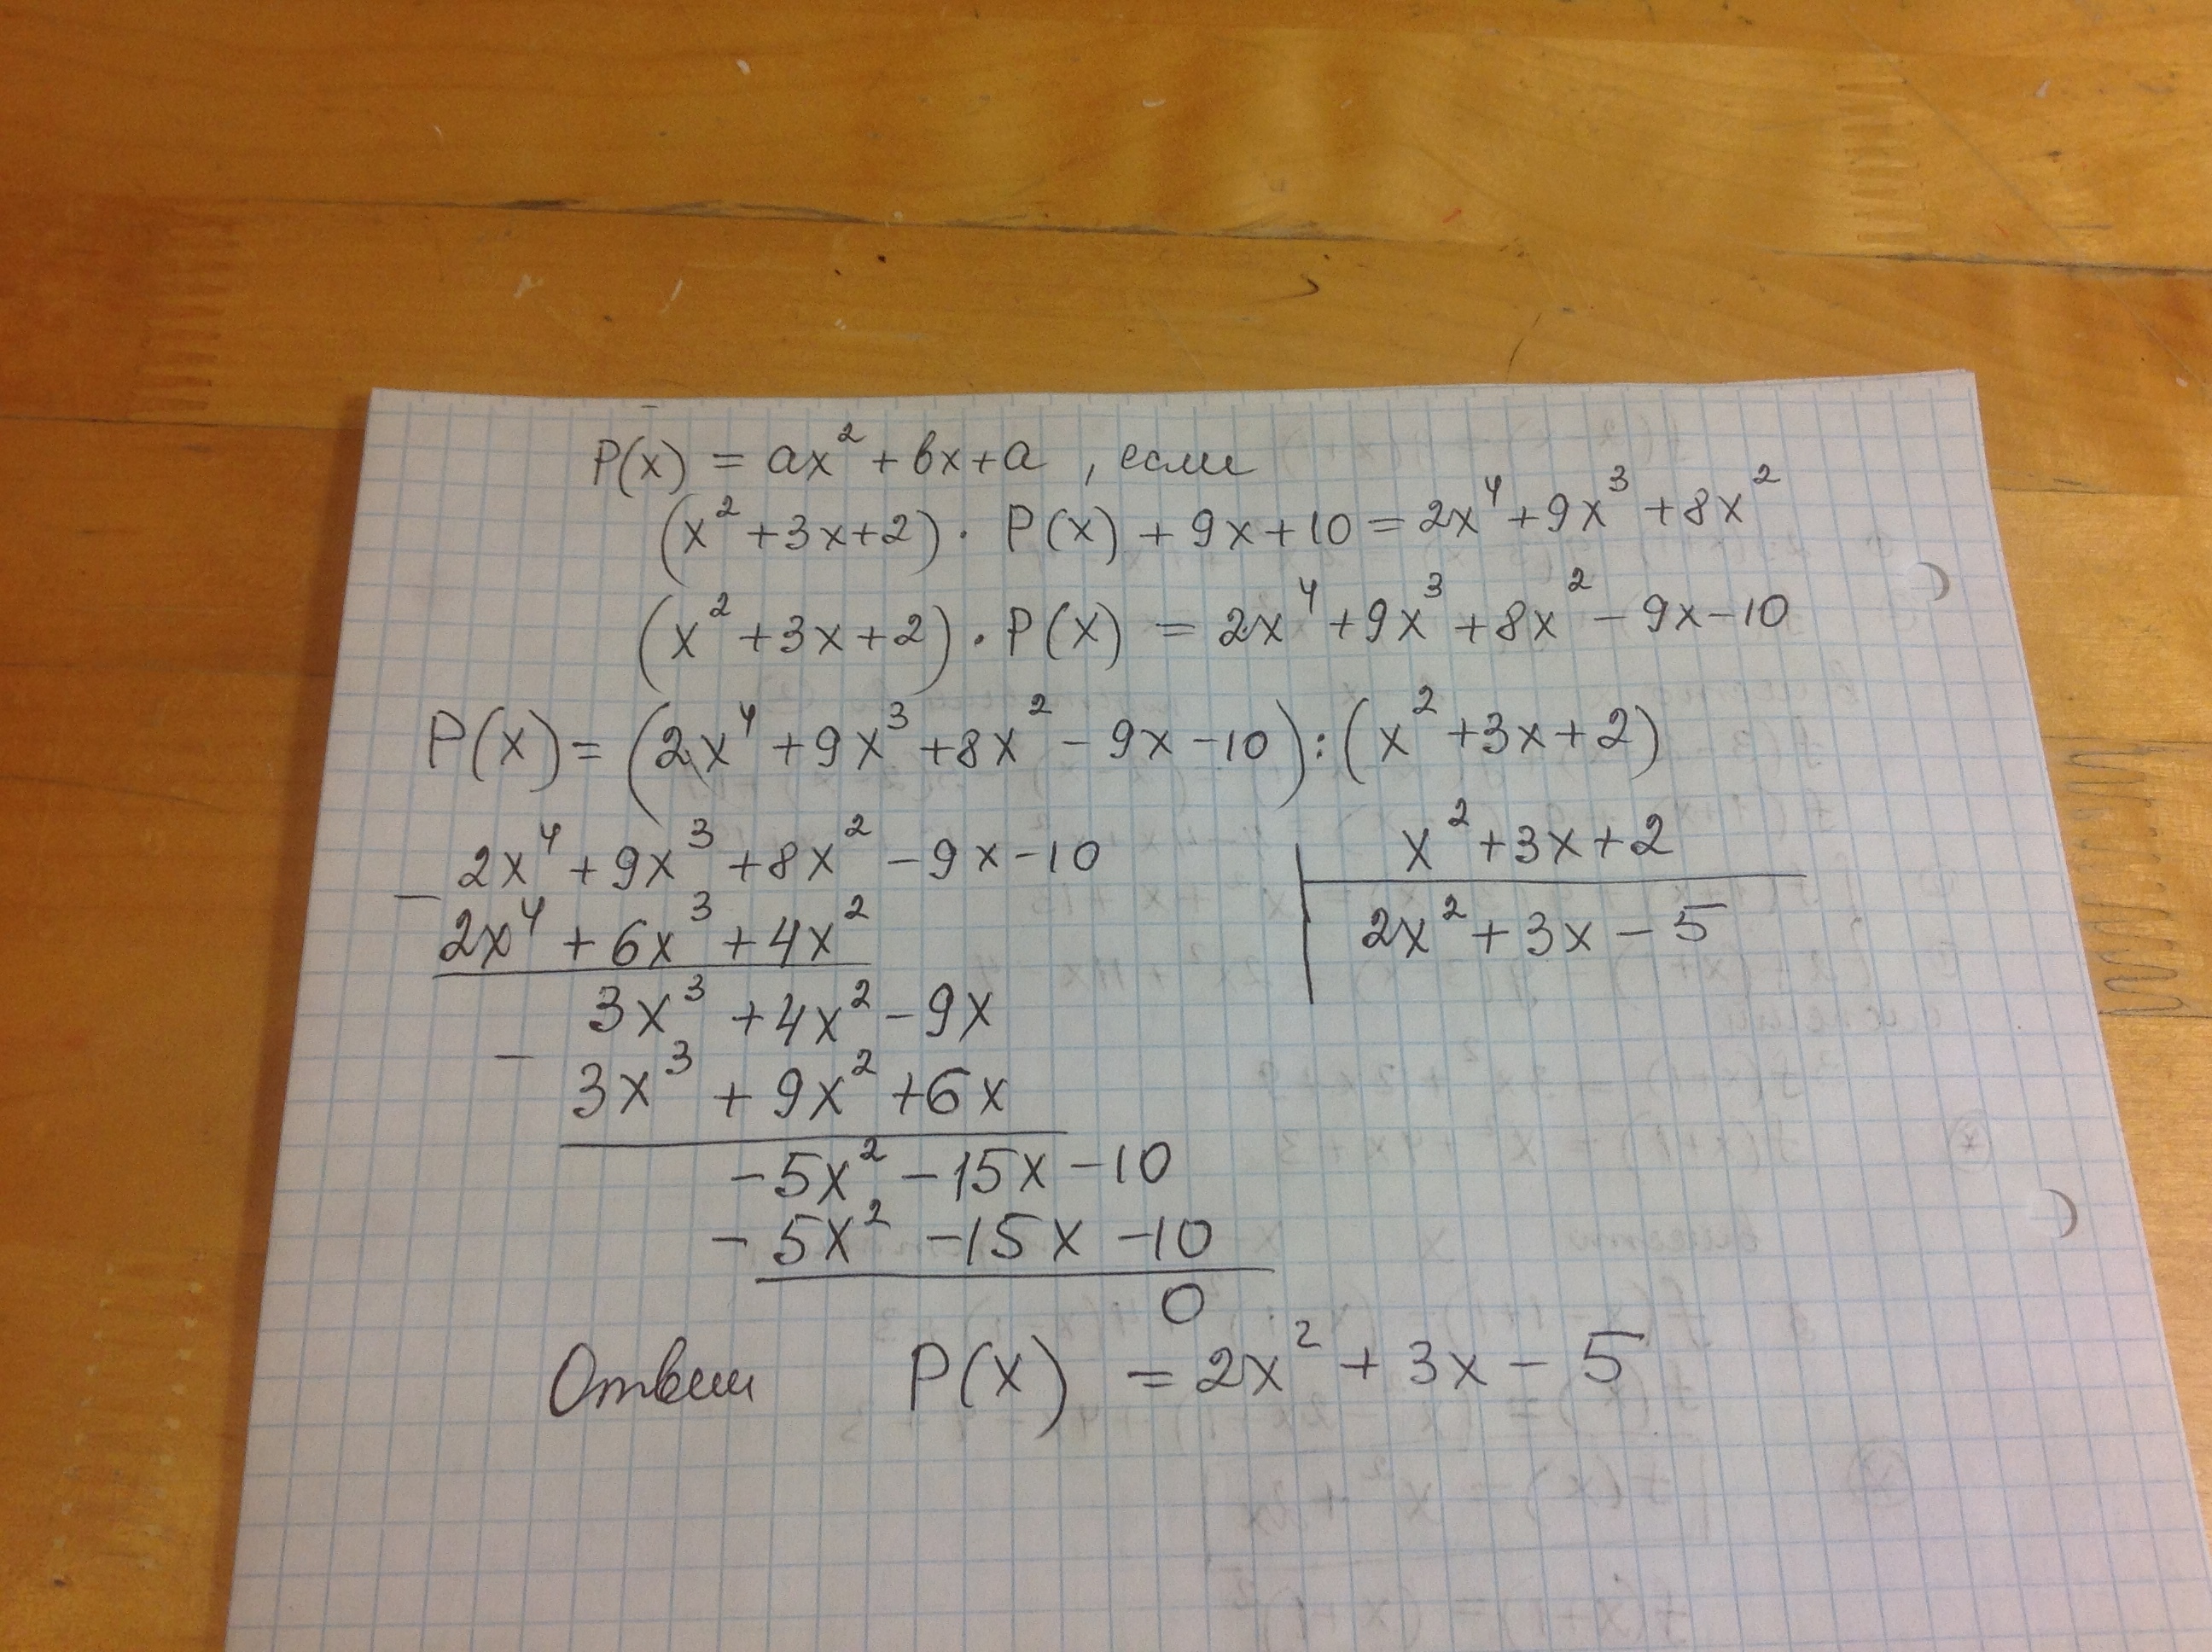 P(x) = ax² + bx + a , если
(x² + 3x + 2) · P(x) + 9x + 10 = 2x⁴ + 9x³ + 8x²
(x² + 3x + 2) · P(x) = 2x⁴ + 9x³ + 8x² - 9x - 10
P(x) = (2x⁴ + 9x³ + 8x² - 9x - 10) : (x² + 3x + 2)
2x⁴ + 9x³ + 8x² - 9x - 10
x² + 3x + 2
-
2x⁴ + 6x³ + 4x²
2x² + 3x - 5
3x³ + 4x² - 9x
-
3x³ + 9x² + 6x
-5x² - 15x - 10
-5x² - 15x - 10
0
Ответ P(x) = 2x² + 3x - 5